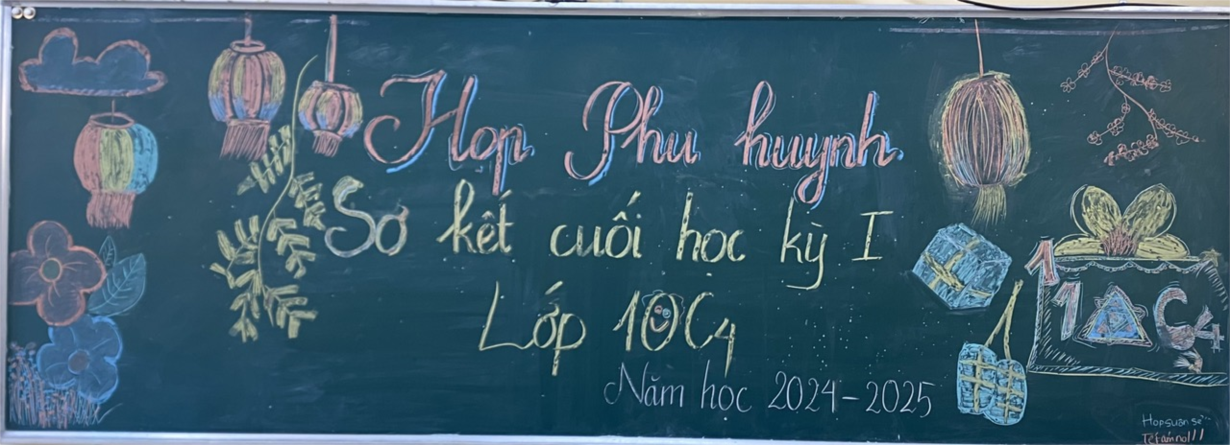 Họp Phu huynh
Sơ kết cuối học kỳ I
Lớp 10C4
Năm học 2024-2025
10C4